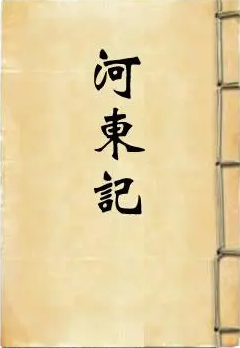 河東記